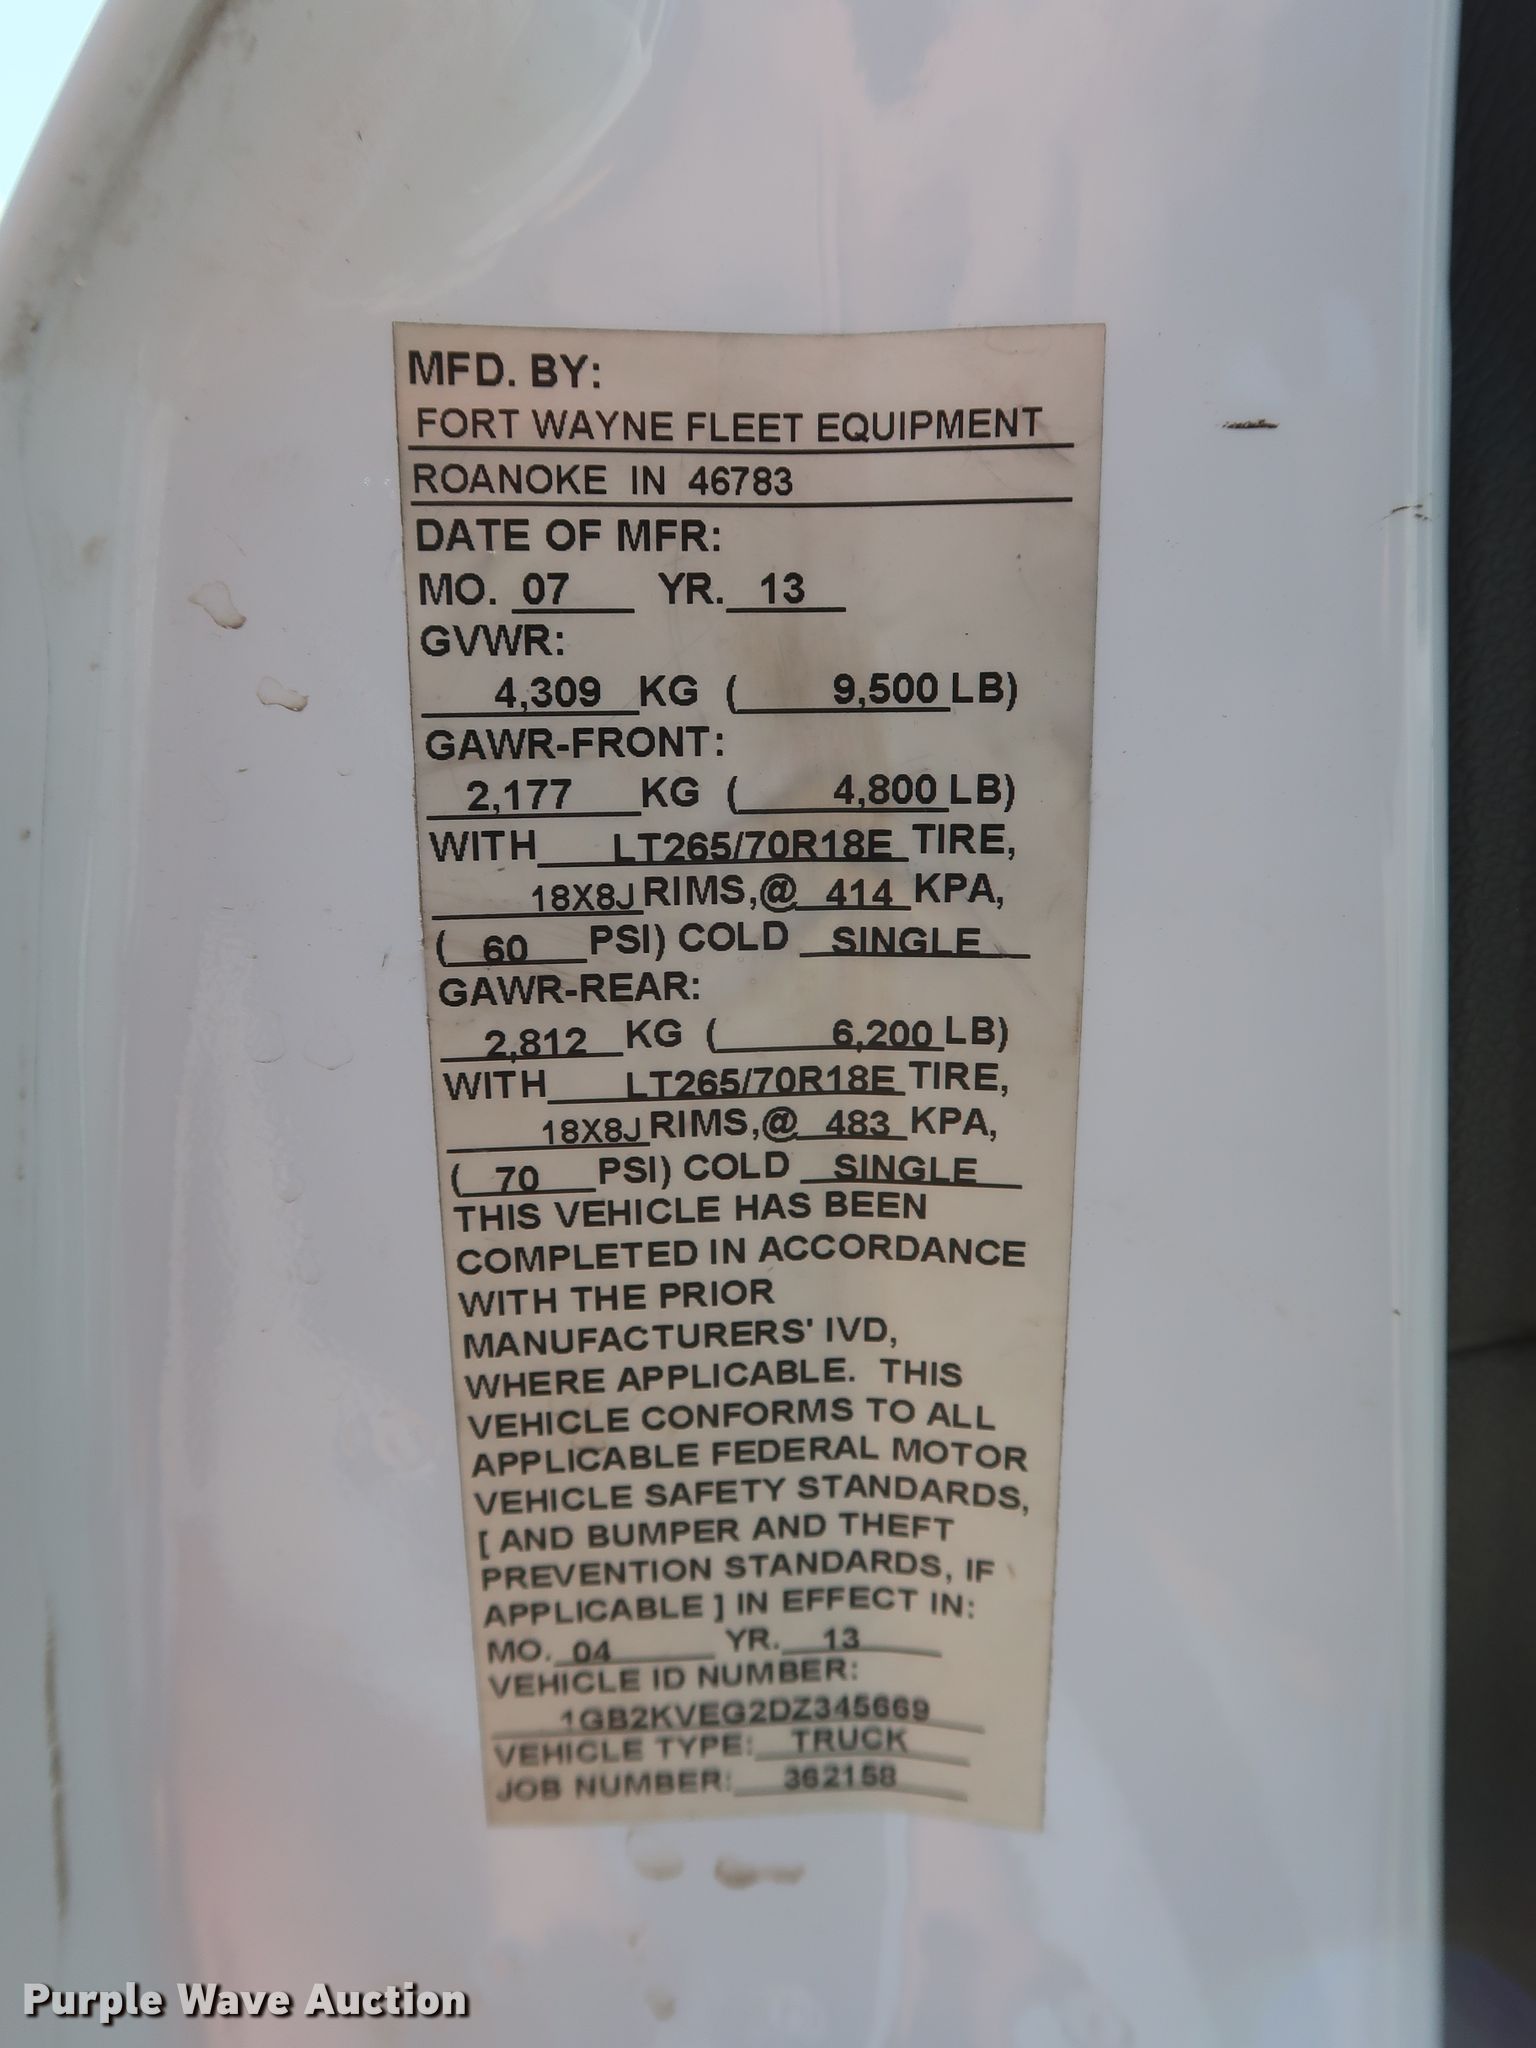 MFD. BY:
FORT WAYNE FLEET EQUIPMENT
ROANOKE IN 46783
DATE OF MFR:
MO. 07 YR. 13
GVWR:
4,309 KG ( 9,500 LB)
GAWR-FRONT:
2,177 KG ( 4,800 LB)
WITH LT265/70R18E TIRE,
18X8J RIMS,@ 414 KPA,
( 60 PSI) COLD SINGLE
GAWR-REAR:
2,812 KG ( 6,200 LB)
WITH LT265/70R18E TIRE,
18X8J RIMS,@ 483 KPA,
( 70 PSI) COLD SINGLE
THIS VEHICLE HAS BEEN
COMPLETED IN ACCORDANCE
WITH THE PRIOR
MANUFACTURERS' IVD,
WHERE APPLICABLE. THIS
VEHICLE CONFORMS TO ALL
APPLICABLE FEDERAL MOTOR
VEHICLE SAFETY STANDARDS,
[ AND BUMPER AND THEFT
PREVENTION STANDARDS, IF
APPLICABLE ] IN EFFECT IN:
MO. 04 YR. 13
VEHICLE ID NUMBER:
1GB2KVEG2DZ345669
VEHICLE TYPE: TRUCK
JOB NUMBER: 362158
Purple Wave Auction